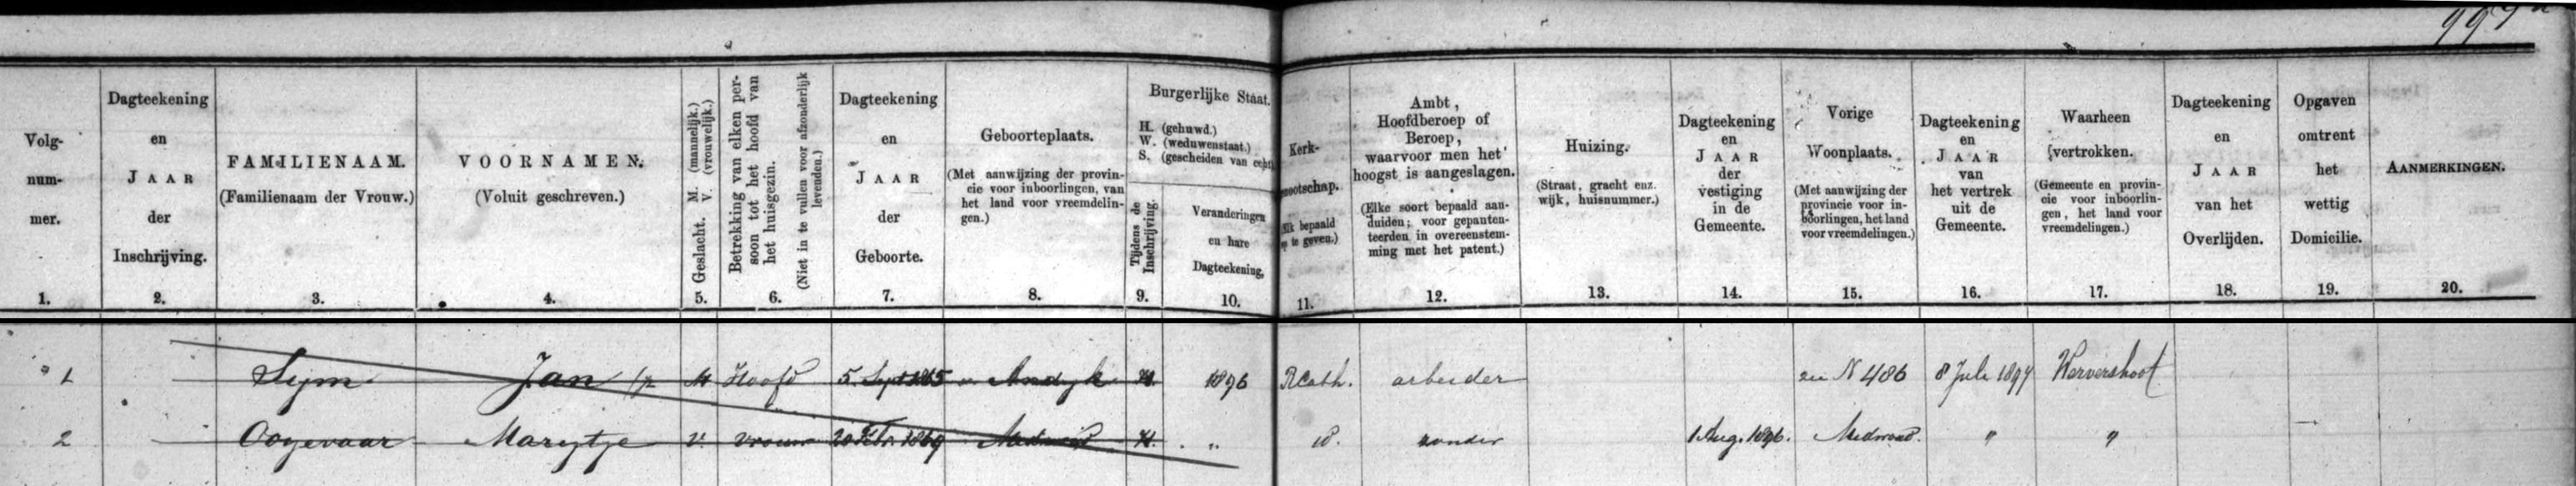 997
Volg-
num-
mer.
1.
Dagteekening
en
JAAR
der
Inschrijving.
2.
FAMILIENAAM.
(Familienaam der Vrouw.)
3.
VOORNAMEN.
(Voluit geschreven.)
4.
Geslacht. M. (mannelijk.)
V. (vrouwelijk.)
5.
Betrekking van elken per-
soon tot het hoofd van
het huisgezin.
(Niet in te vullen voor afzonderlijk
levenden.)
6.
Dagteekening
en
JAAR
der
Geboorte.
7.
Geboorteplaats.
(Met aanwijzing der provin-
cie voor inboorlingen, van
het land voor vreemdelin-
gen.)
8.
Burgerlijke Staat.
H. (gehuwd.)
W. (weduwenstaat.)
S. (gescheiden van echt
Tijdens de
Inschrijving.
9.
Veranderingen
en hare
Dagteekening,
10.
Kerk-
nootschap.
lk bepaald
p te geven.)
11.
Ambt,
Hoofdberoep of
Beroep,
waarvoor men het
hoogst is aangeslagen.
(Elke soort bepaald aan-
duiden; voor gepanten-
teerden in overeenstem-
ming met het patent.)
12.
Huizing.
(Straat, gracht enz.
wijk, huisnummer.)
13.
Dagteekening
en
JAAR
der
vestiging
in de
Gemeente.
14.
Vorige
Woonplaats.
(Met aanwijzing der
provincie voor in-
boorlingen, het land
voor vreemdelingen.)
15.
Dagteekening
en
JAAR
van
het vertrek
uit de
Gemeente.
16.
Waarheen
vertrokken.
(Gemeente en provin-
cie voor inboorlin-
gen, het land voor
vreemdelingen.)
17.
Dagteekening
en
JAAR
van het
Overlijden.
18.
Opgaven
omtrent
het
wettig
Domicilie.
19.
AANMERKINGEN.
20.
1 Sijm Jan M Hoofd 5 Sept 1865 Andijk H. 1896 RCath. arbeider N 486 8 Juli 1897 Wervershoof
2 Ooyevaar Marijtje V. vrouw 20 Febr. 1869 Medemb H. " id. zonder 1 Aug. 1896. " "